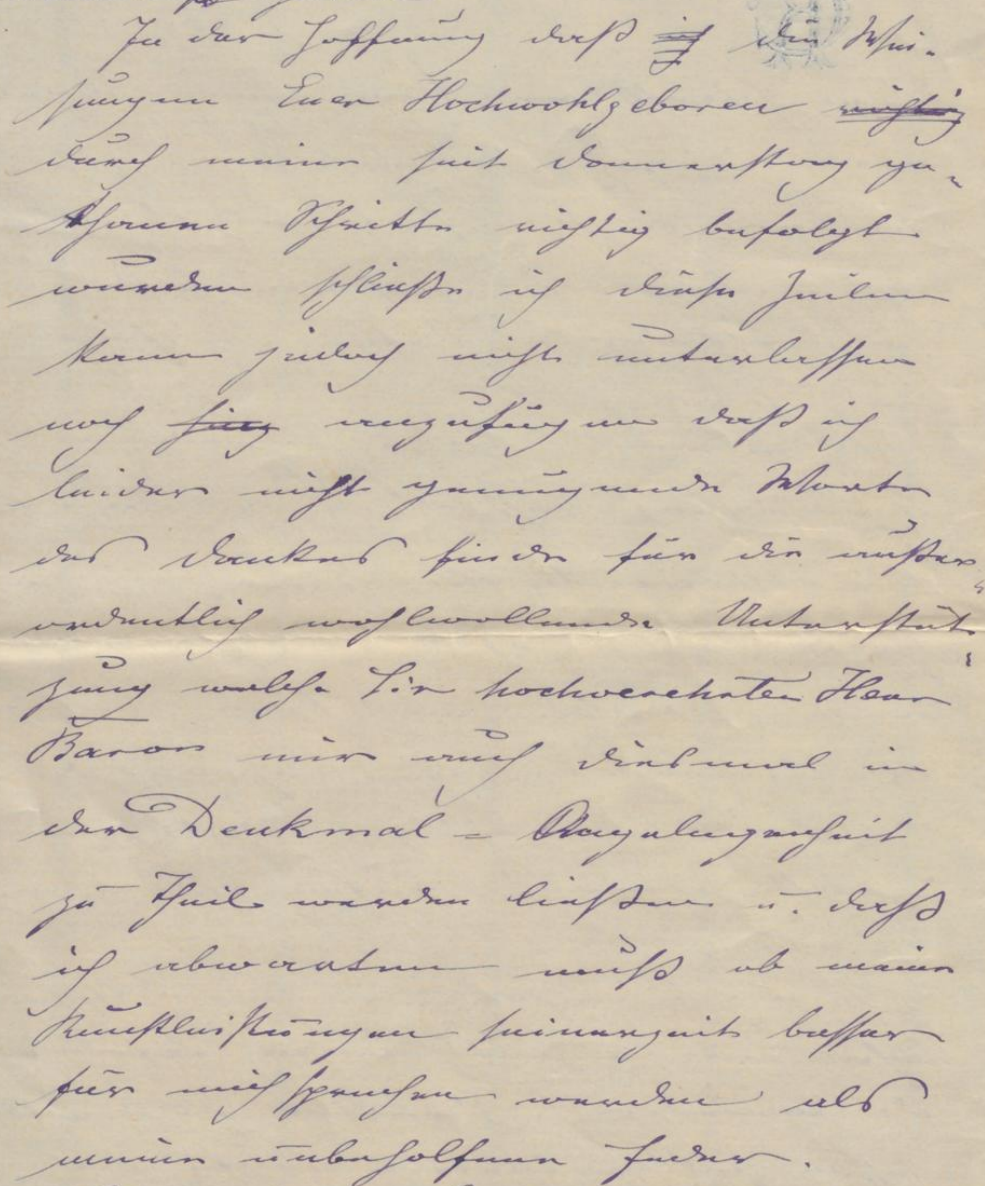 In der Hoffnung daß ich die Wei-
sungen Euer Hochwohlgeboren richtig
durch meine seit Donnerstag ge-
thanen Schritte richtig befolgt
wurden schließe ich diese Zeilen
kann jedoch nicht unterlassen
noch anzufügen daß ich
leider nicht genügende Worte
des Dankes finde für die außer-
ordentlich wohlwollende Unterstüt-
zung welche Sie hochverehrter Herr
Baron mir auch diesmal in
der Denkmal-Angelegenheit
zu Theil werden ließen u. daß
ich abwarten muß ob meine
Kunstleistungen seinerzeit besser
für mich sprechen werden als
meine unbeholfene Feder.